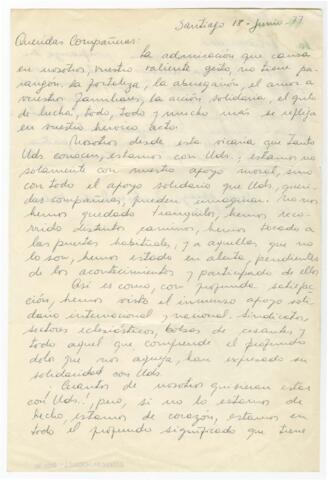 Santiago 18 - Junio - 77
Queridas Compañeras:
La admiración que causa
en nosotros, vuestro valiente gesto, no tiene pa-
rangón. La fortaleza, la abnegación, el amor a
vuestros familiares, la acción solidaria, el grito
de lucha, todo, todo y mucho más se refleja
en vuestro heroico acto.
Nosotros desde esta vicaría que tanto
Uds. conocen, estamos con Uds.; estamos no
solamente con nuestro apoyo moral, sino
con todo el apoyo solidario que Uds., queri-
das compañeras, pueden imaginar. No nos
hemos quedado tranquilos, hemos reco-
rrido distintos caminos, hemos tocado a
las puertas habituales, y a aquellas que no
lo son, hemos estado en alerta, pendientes
de los acontecimientos y participado de ellos
Así es como, con profunda satisfac-
ción, hemos visto el inmenso apoyo soli-
dario internacional y nacional. Sindicatos,
sectores eclesiásticos, bolsas de cesantes, y
todo aquel que comprende el profundo
dolor que nos aqueja, han expresado su
solidaridad con Uds.
¡Cuántos de nosotros quisieran estar
con Uds.!, pero, si no lo estamos de
hecho, estamos de corazón, estamos en
todo el profundo significado que tiene